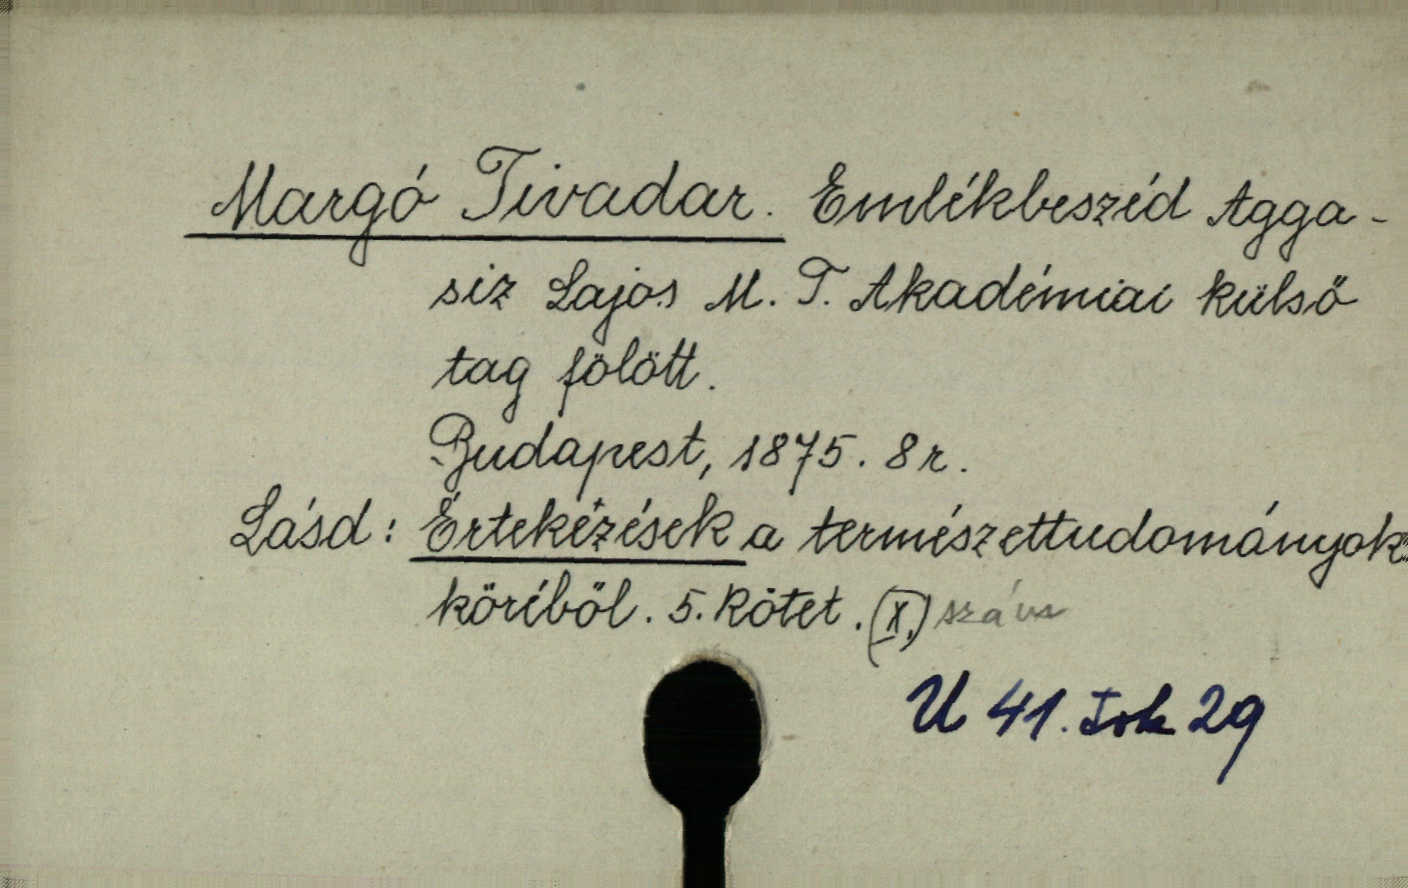 Margó Tivadar. Emlékbeszéd Agga-
siz Lajos M. T. Akadémiai külső
tag fölött.
Budapest, 1875. 8r.
Lásd: Értekézések a természettudományok
köréből. 5. Kötet. (X.) szám
U 41. Isk 29